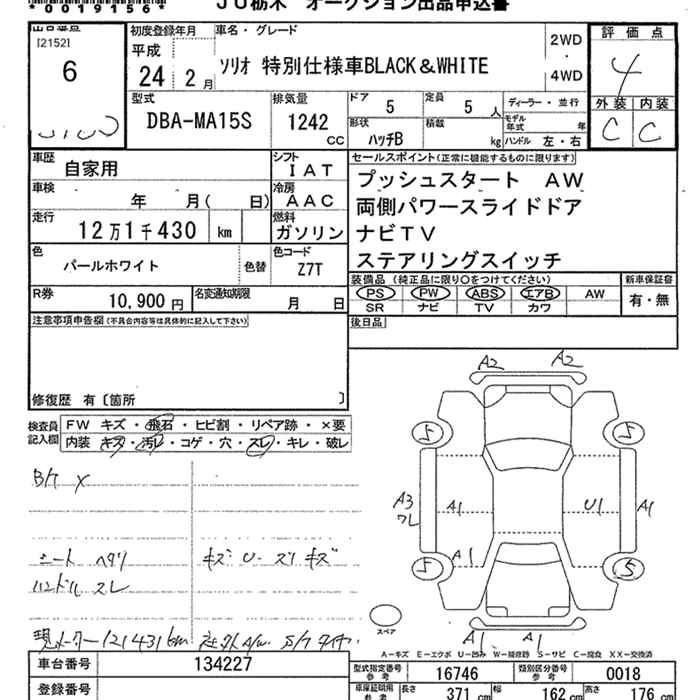 *00119156*
JU栃木 オークション出品申込書
出品番号
[2152]
6
初度登録年月
平成
24 2月
車名・グレード
ソリオ 特別仕様車BLACK&WHITE
2WD
・
4WD
評価点
4
外装 内装
C C
型式
DBA-MA15S
排気量
1242 CC
ドア 5
定員 5 人
形状 ハッチB
積載 kg
ディーラー・並行
モデル年式 年
ハンドル 左・右
車歴 自家用
シフト IAT
車検 年 月( 日)
冷房 AAC
走行 12万1千430 km
燃料 ガソリン
色 パールホワイト
色替
色コード Z7T
R券 10,900円
名変通知期限 月 日
セールスポイント(正常に機能するものに限ります)
プッシュスタート AW
両側パワースライドドア
ナビTV
ステアリングスイッチ
装備品 (純正品に限り○をつけてください)
新車保証書
PS PW ABS エアB AW
有・無
SR ナビ TV カワ
後日品
注意事項申告欄(不具合内容等は具体的に記入して下さい)
修復歴 有〔箇所 〕
検査員記入欄
FW キズ・飛石・ヒビ割・リペア跡・×要
内装・キズ・汚レ・コゲ・穴・スレ・キレ・破レ
シート ヘタリ
ハンドル スレ
現メーター121431km 社外A/W S/Tタイヤ
A2 A2
5 5
A3
ワレ
A1 U1 A1
A1
5 5
A1 A1
スペア
A-キズ E-エクボ U-凹み W-補修跡 S-サビ C-腐食 XX-交換済
車台番号 134227
登録番号
型式指定番号 参考 16746
類別区分番号 参考 0018
車庫証明用 参考 長さ 371 cm 幅 162 cm 高さ 176 cm